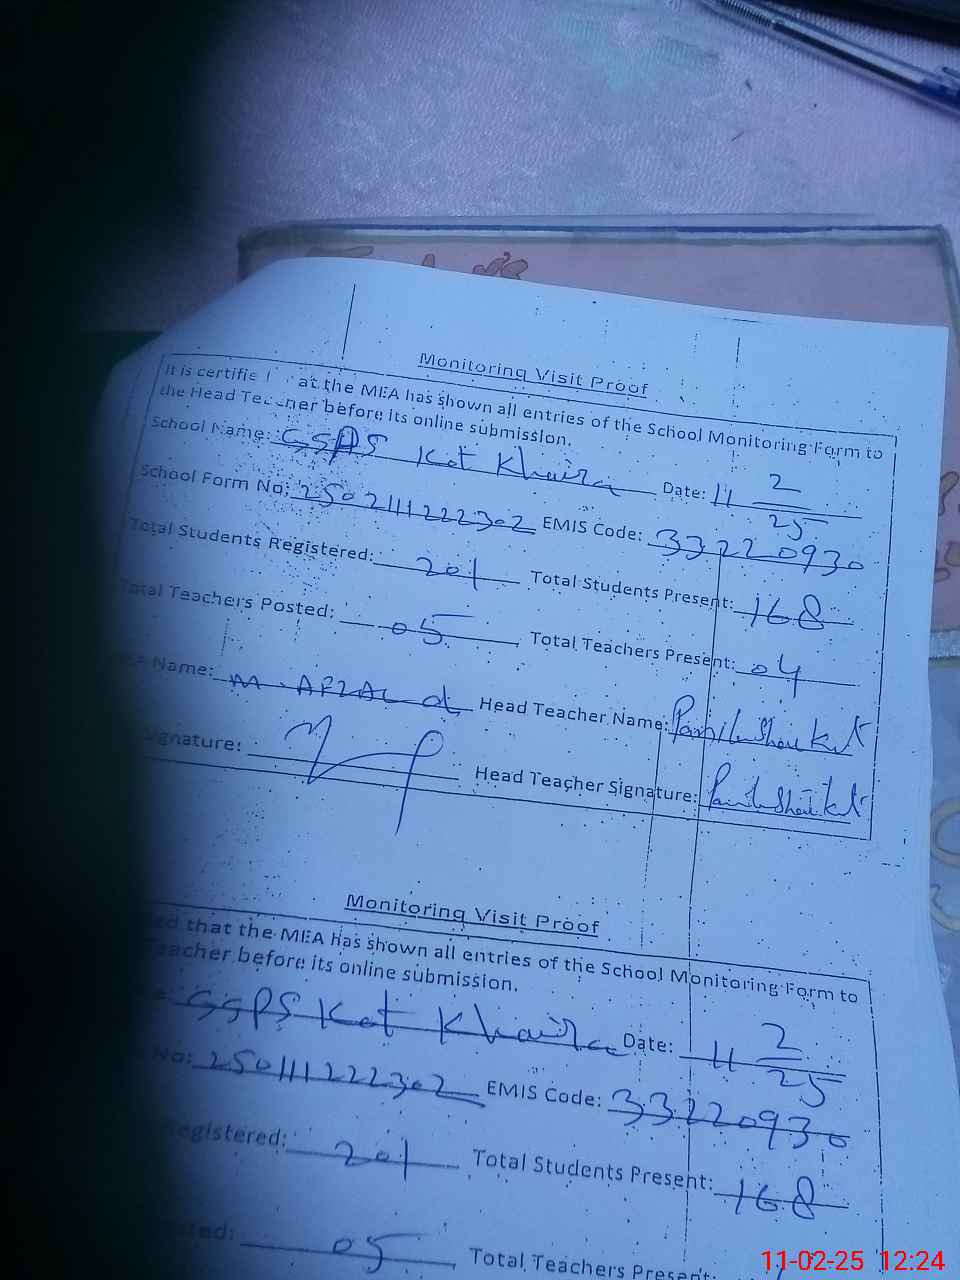 Monitoring Visit Proof
It is certifie at the MEA has shown all entries of the School Monitoring Form to
the Head Teacher before its online submission.
School Name: GSPS Kot Khaira Date: 11 2/25
School Form No: 2502111222302 EMIS Code: 33220930
Total Students Registered: 201 Total Students Present: 168
Total Teachers Posted: 05 Total Teachers Present: 04
Name: M. AFZAL Head Teacher Name: Shaukat
ignature: Head Teacher Signature: Shaukat
Monitoring Visit Proof
ed that the MEA has shown all entries of the School Monitoring Form to
eacher before its online submission.
GSPS Kot Khaira Date: 11 2/25
No: 250111222302 EMIS Code: 33220930
Registered: 201 Total Students Present: 168
sted: 05 Total Teachers Present:
11-02-25 12:24